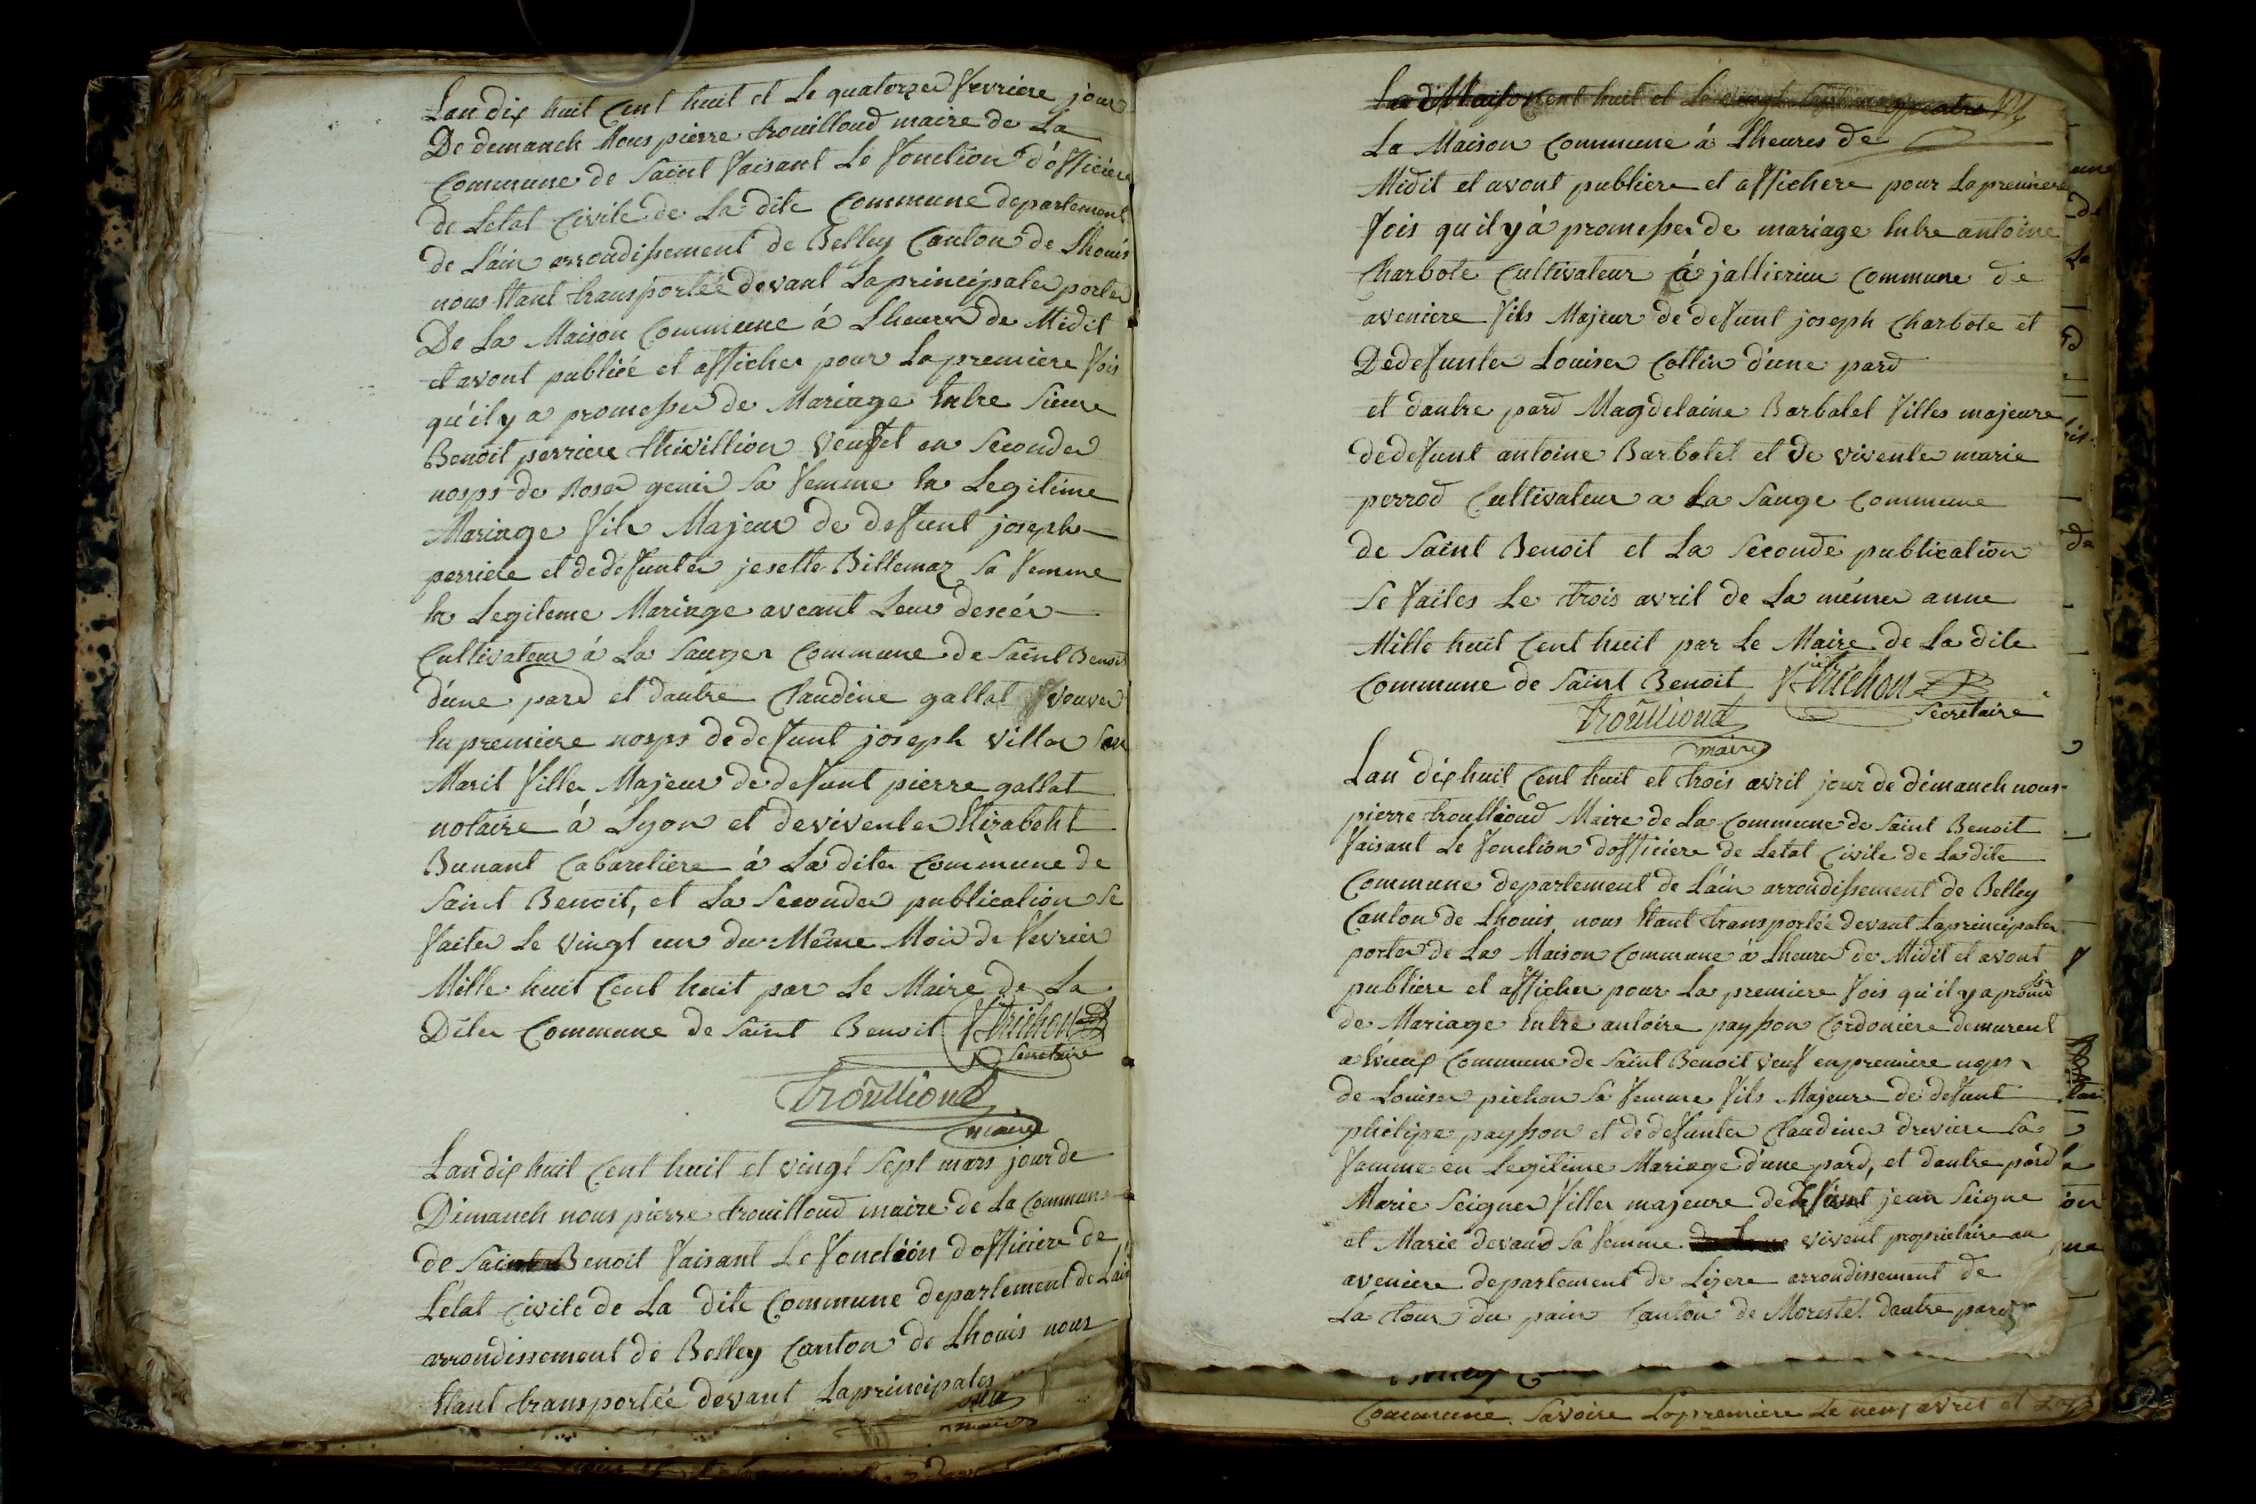 Lan dix huit Cent huit et Le quatorze fevriere jour
De demanch Nous pierre trouilloud maire de La
Commune de Saint faisant Le fonction d'officiere
de Letat Civile de La dite Commune departement
de L'ain arrondissement de Belley Canton de Lhouis
nous Etant transportée devant La principales portes
De La Maison Commune á Lheure de Midit
et avont publiée et affiches pour La premiere fois
qu'il y a promesse de Mariage Entre Sieur
Benoit perriere thivillion veuf et en Secondes
nosps de Rose genin Sa femme En Legitime
Mariage fils Majeur de defunt joseph
perriere et de defuntes josette Billemaz Sa femme
En Legiteme Mariage aveant Leur deséés
Cultivateur á La Sauges Commune de Saint Benoit
d'une pard et dautre Claudine gallat veuves
En premiere nosps de defunt joseph villes Son
Marit filles Majeur de defunt pierre gallat
notaire á Lyon et de viventes Elizabeht
Bunant Cabaretiere á La dites Commune de
Saint Benoit, et La Secondes publication Se
faites Le vingt un du Même Mois de fevrier
Mille huit Cent huit par Le Maire de La
Dites Commune de Saint Benoit Trichon
Secretaire
Troulliond
maire
Lan dix huit Cent huit et vingt Sept mars jour de
Dimanch nous pierre trouilloud maire de La Commune
de Saint Benoit faisant Le fonction d'officiere de
L'etat Civile de La dite Commune departement de Lain
arrondissement de Belley Canton de Lhouis nous
Etant transportée devant La principales
maire
Cent huit et Le
La Maison Commune á Lheures de
Midit et avont publiere et affichere pour La premiere
fois qu'il y à promesses de mariage Entre antoine
Charbote Cultivateur á jallierieu Commune de
aveniere fils Majeur de defunt joseph Charbote et
De defuntes Louises Cottin d'une pard
et dautre pard Magdelaine Barbolet filles majeure
de defunt antoine Barbolet et de viventes marie
perrod Cultivateur a La Sauge Commune
de Saint Benoit et La Seconde publication
Se faites Le trois avril de La mêmes anne
Mille huit Cent huit par Le Maire de La dite
Commune de Saint Benoit Trichon
Secretaire
Troulliond
maire
Lan dix huit Cent huit et trois avril jour de dimanch nous
pierre troullioud Maire de La Commune de Saint Benoit
faisant Le fonction d'officiere de Letat Civile de La dite
Commune departement de L'ain arrondissement de Belley
Canton de Lhouis nous Etant transportée devant La principales
portes de La Maison Commune á Lheure de Midit et avont
publiere et affiches pour La premiere fois qu'il y a promesse
de Mariage Entre antoine paysson Cordoniere demurent
a Evieux Commune de Saint Benoit veuf en premiere nops
de Louises pichon Sa femme fils Majeure de defunt
phelipe paysson et de defuntes Claudines dreviere Sa
famme en Legitime Mariage d'une pard, et dautre pard
Marie Seignes filles majeure de defunt jean Seigne
et Marie devaud Sa femme vivent proprietaire au
aveniere departement de Lizere arrondissement de
La tour du pain Canton de Morestel dautre pard
Commune Savoire La premiere Le neuf avril et